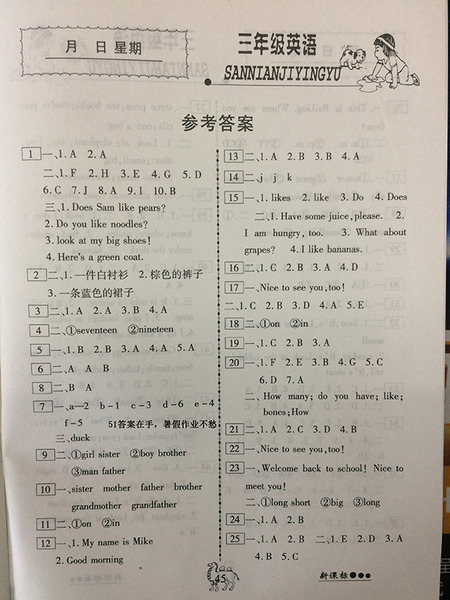 月 日 星期
三年级英语
SANNIANJIYINGYU
参考答案
1 一、1. A 2. A
二、1. F 2. H 3. E 4. G 5. D
6. C 7. J 8. A 9. I 10. B
三、1. Does Sam like pears?
2. Do you like noodles?
3. look at my big shoes!
4. Here's a green coat.
2 二、1. 一件白衬衫 2. 棕色的裤子
3. 一条蓝色的裙子
3 二、1. A 2. A 3. B 4. A
4 二、①seventeen ②nineteen
5 一、1. B 2. B 3. A 4. A 5. A
6 二、A A B
8 二、B A
7 一、a—2 b-1 c-3 d-6 e-4
f-5 51答案在手，暑假作业不愁
三、duck
9 二、①girl sister ②boy brother
③man father
10 一、sister mother father brother
grandmother grandfather
11 二、①on ②in
12 一、1. My name is Mike
2. Good morning
13 二、1. A 2. B 3. B 4. A
14 二、j j k
15 一、1. likes 2. like 3. Do 4. Does
二、1. Have some juice, please. 2.
I am hungry, too. 3. What about
grapes? 4. I like bananas.
16 二、1. C 2. B 3. A 4. D
17 一、Nice to see you, too!
二、1. C 2. B 3. D 4. A 5. E
18 二、①on ②in
19 一、1. C 2. B 3. A
20 一、1. F 2. E 3. B 4. G 5. C
6. D 7. A
二、How many; do you have; like;
bones; How
21 二、1. D 2. C 3. A 4. B
22 一、Nice to see you, too!
23 一、Welcome back to school! Nice to
meet you!
二、①long short ②big ③long
24 一、1. A 2. B
25 一、1. A 2. B 二、1. E 2. D 3. A
4. B 5. C
45
新课标